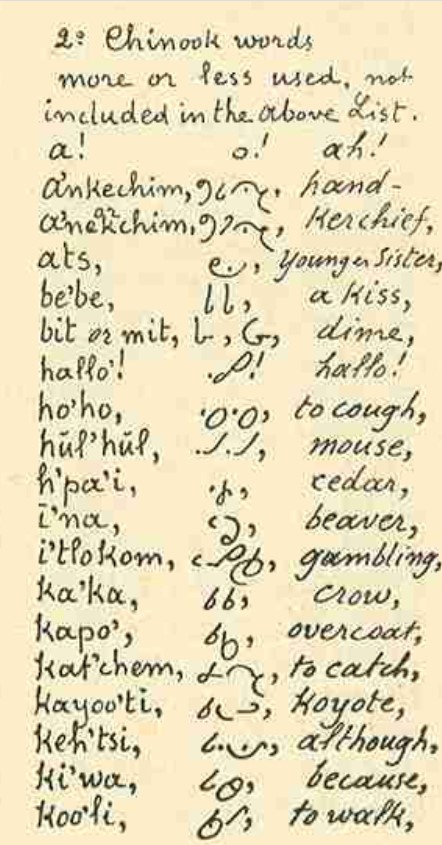 2º Chinook words
more or less used, not
included in the above List.
a! ah!
a'nkechim, hand-
a'nekchim, Kerchief,
ats, younger Sister,
be'be, a Kiss,
bit or mit, dime,
hallo'! hallo!
ho'ho, to cough,
hŭl'hŭl, mouse,
h'pa'i, cedar,
i'na, beaver,
i'tlokom, gambling,
ka'ka, crow,
kapo', overcoat,
kat'chem, to catch,
kayoo'ti, Koyote,
keh'tsi, although,
ki'wa, because,
koo'li, to walk,